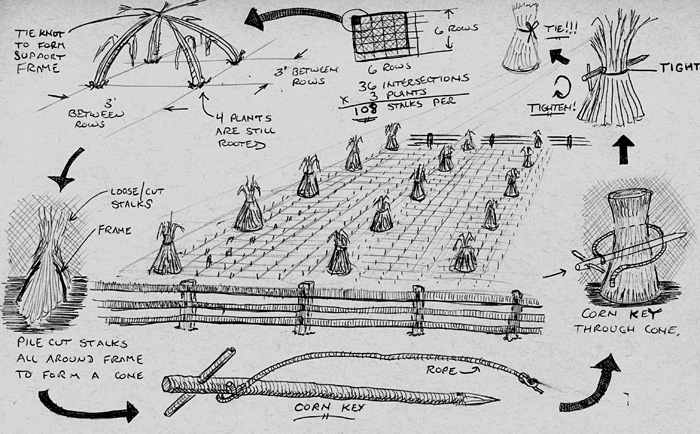 TIE KNOT
TO FORM
SUPPORT
FRAME
3' BETWEEN
ROWS
3'
BETWEEN
ROWS
4 PLANTS
ARE STILL
ROOTED
6 ROWS
6 ROWS
36 INTERSECTIONS
x 3 PLANTS
108 STALKS PER
TIE!!!
TIGHTEN!
TIGHT
LOOSE/CUT
STALKS
FRAME
PILE CUT STALKS
ALL AROUND FRAME
TO FORM A CONE
ROPE
CORN KEY
CORN KEY
THROUGH CONE.